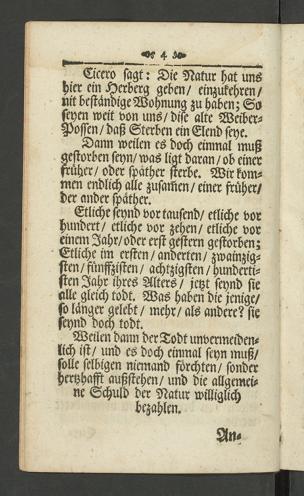 4
Cicero sagt: Die Natur hat uns
hier ein Herberg geben/ einzukehren/
nit beständige Wohnung zu haben; So
seyen weit von uns/ dise alte Weiber-
Possen/ daß Sterben ein Elend seye.
Dann weilen es doch einmal muß
gestorben seyn/ was ligt daran/ ob einer
früher/ oder späther sterbe. Wir kom-
men endlich alle zusam̃en/ einer früher/
der ander späther.
Etliche seynd vor tausend/ etliche vor
hundert/ etliche vor zehen/ etliche vor
einem Jahr/ oder erst gestern gestorben;
Etliche im ersten/ anderten/ zwainzig-
sten/ fünffzisten/ achtzigsten/ hunderti-
sten Jahr ihres Alters/ jetzt seynd sie
alle gleich todt. Was haben die jenige/
so länger gelebt/ mehr/ als andere? sie
seynd doch todt.
Weilen dann der Todt unvermeiden-
lich ist/ und es doch einmal seyn muß/
solle selbigen niemand förchten/ sonder
hertzhafft außstehen/ und die allgemei-
ne Schuld der Natur williglich
bezahlen.
An-